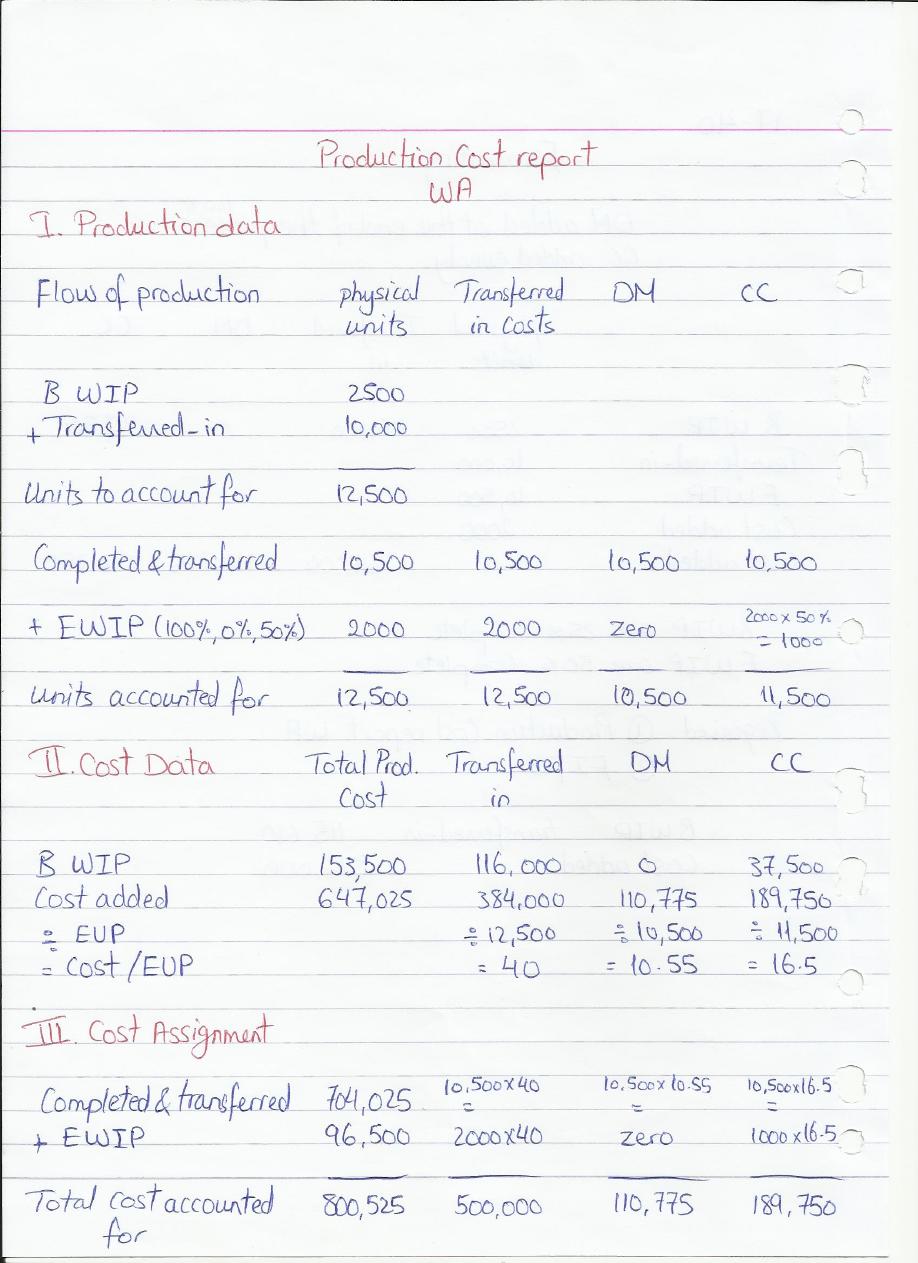 Production Cost report
WA
I. Production data
Flow of production physical units Transferred in costs DM CC
B WIP 2500
+ Transferred-in 10,000
Units to account for 12,500
Completed & transferred 10,500 10,500 10,500 10,500
+ EWIP (100%, 0%, 50%) 2000 2000 Zero 2000 x 50% = 1000
Units accounted for 12,500 12,500 10,500 11,500
II. Cost Data Total Prod. Cost Transferred in DM CC
B WIP 153,500 116,000 0 37,500
Cost added 647,025 384,000 110,775 189,750
÷ EUP ÷ 12,500 ÷ 10,500 ÷ 11,500
= Cost / EUP = 40 = 10.55 = 16.5
III. Cost Assignment
Completed & transferred 704,025 10,500x40 = 10,500x10.55 = 10,500x16.5 =
+ EWIP 96,500 2000x40 Zero 1000x16.5
Total cost accounted for 800,525 500,000 110,775 189,750